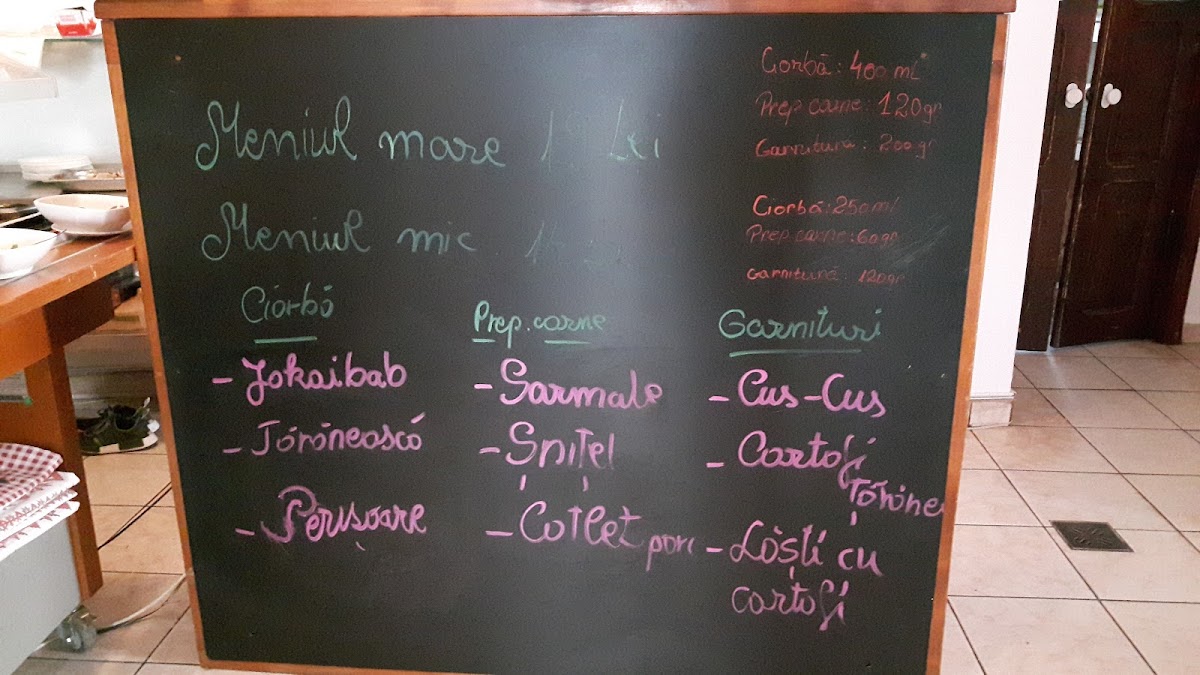 Meniul mare 19 Lei
Meniul mic
Ciorbă: 400 ml
Prep carne: 120gr
Garnitură: 200gr
Ciorbă: 250ml
Prep carne: 60gr
Garnitură: 120gr
Ciorbă
- Jokaibab
- Tărănească
- Perișoare
Prep. carne
- Sarmale
- Șnițel
- Cotlet porc
Garnituri
- Cus-Cus
- Cartofi
țărăne
- Lăști cu
cartofi